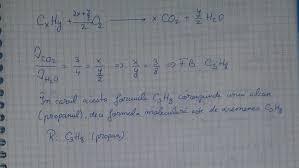 CxHy + (2x+y/2)/2 O2 → x CO2 + y/2 H2O
νCO2/νH2O = 3/4 = x/(y/2) ⇒ x/y = 3/8 ⇒ F.B. C3H8
În cazul acesta formula C3H8 corespunde unui alcan
(propanul), deci formula moleculară este de asemenea C3H8
R. C3H8 (propan)